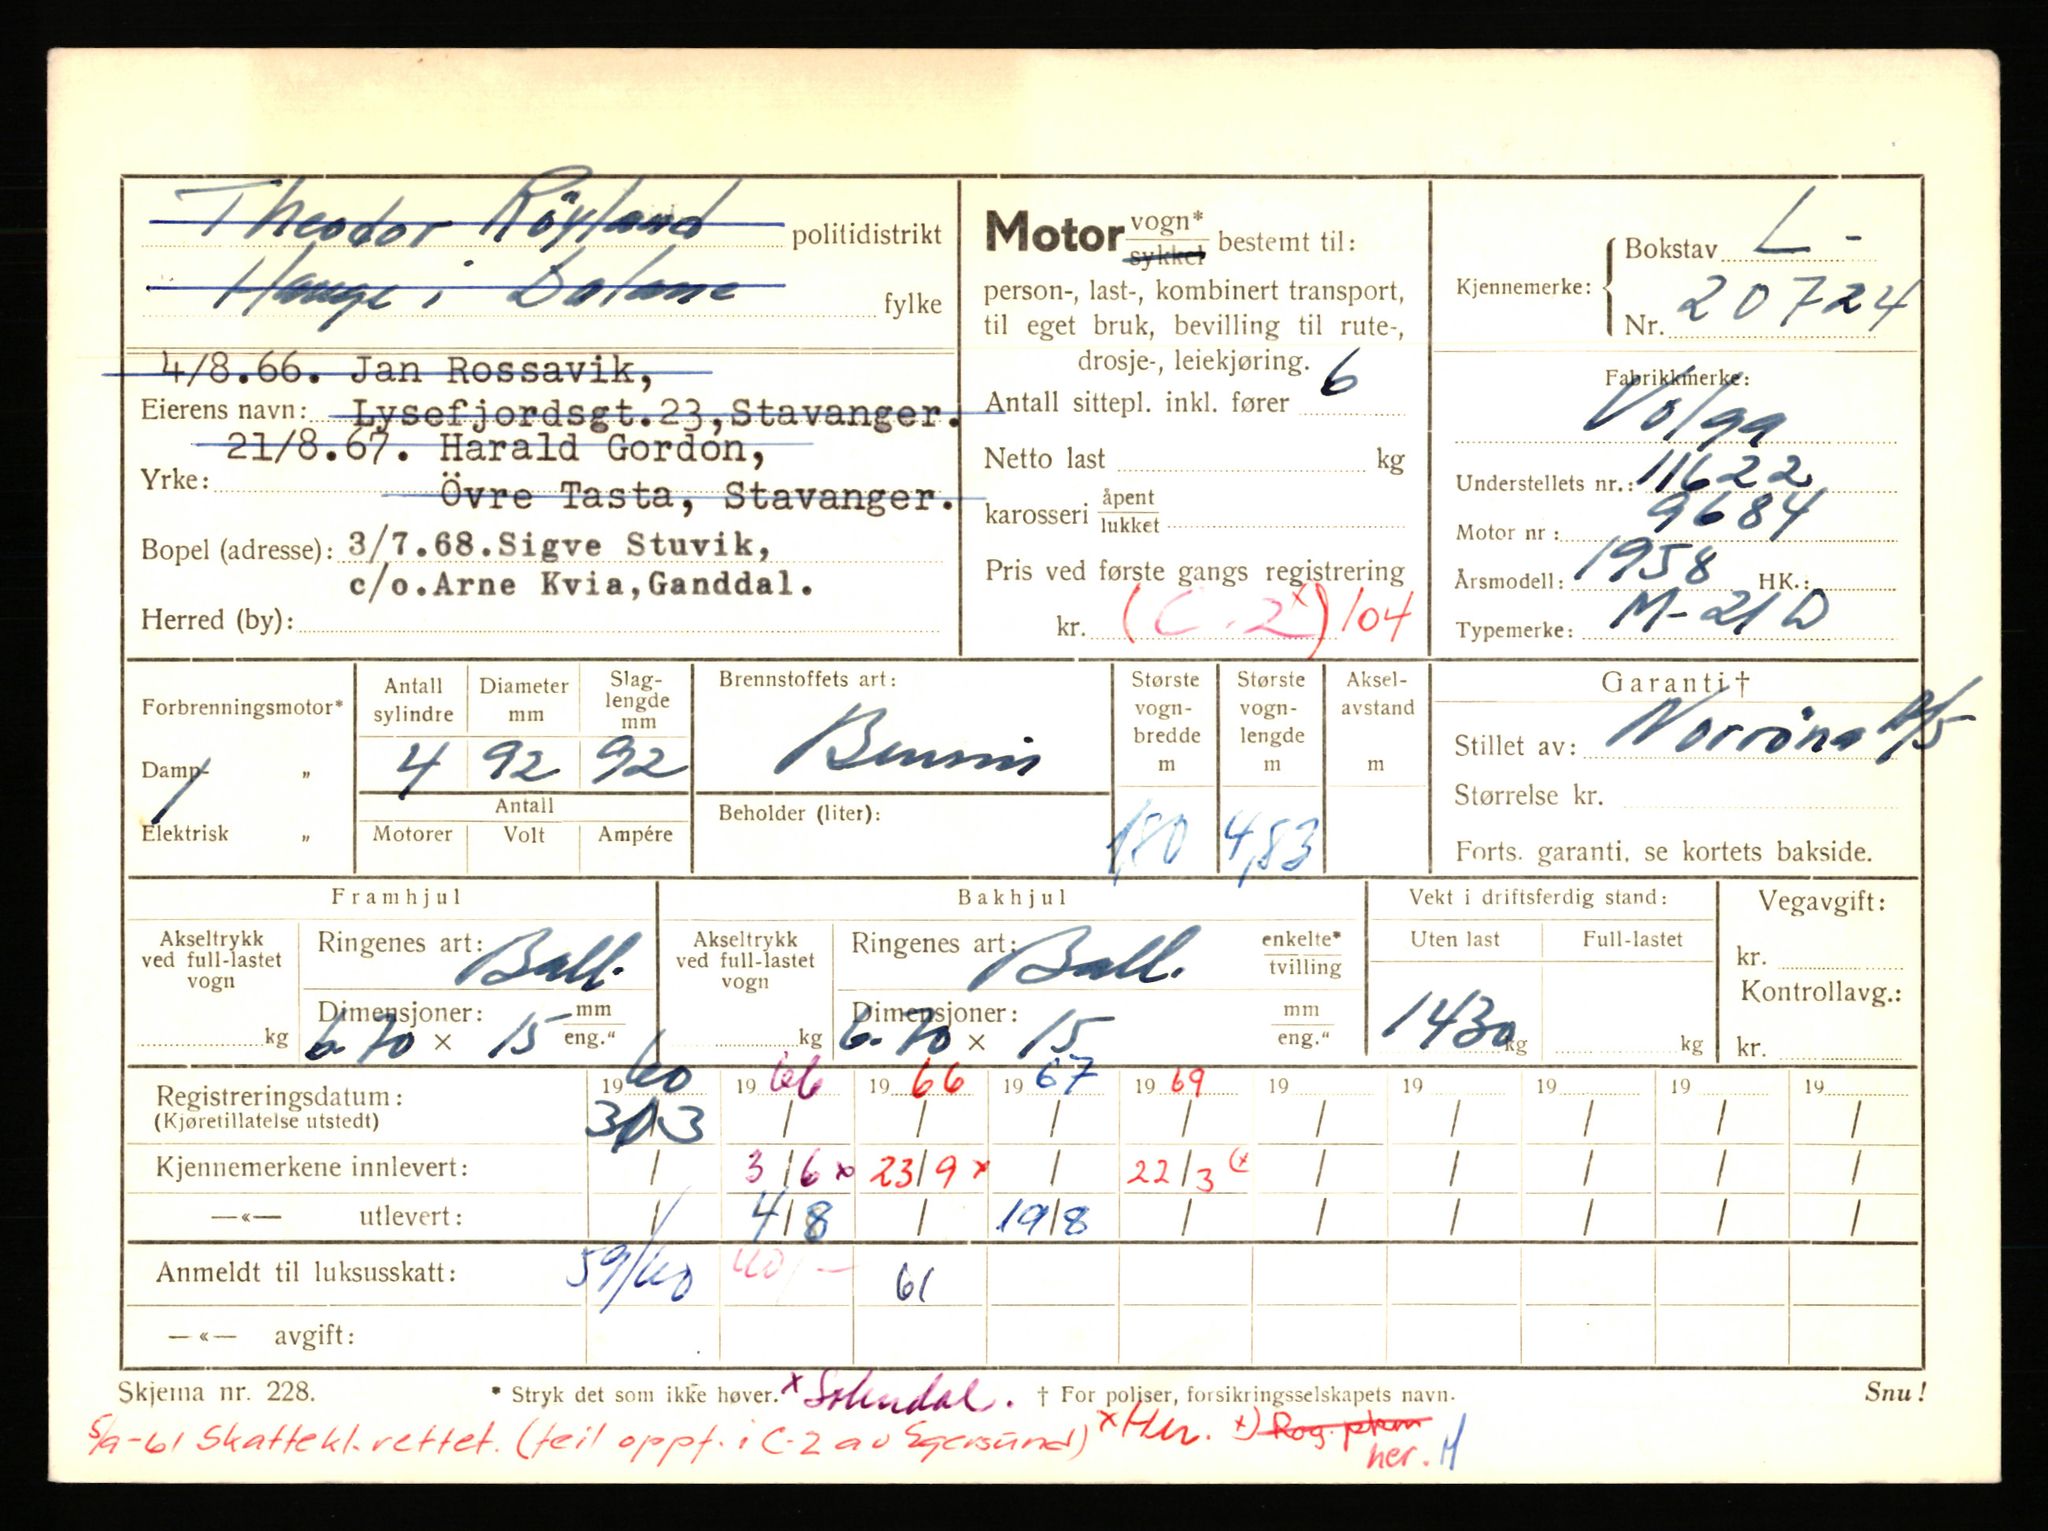 Theodor Röyland politidistrikt
Hauge i Dalane fylke
4/8.66. Jan Rossavik,
Eierens navn: Lysefjordsgt.23,Stavanger.
21/8.67. Harald Gordon,
Yrke: Övre Tasta, Stavanger.
Bopel (adresse): 3/7.68.Sigve Stuvik,
c/o.Arne Kvia,Ganddal.
Herred (by):
Motor vogn* sykkel bestemt til:
person-, last-, kombinert transport,
til eget bruk, bevilling til rute-,
drosje-, leiekjøring.
Antall sittepl. inkl. fører 6
Netto last kg
karosseri åpent lukket
Pris ved første gangs registrering
kr. (C.2x) 104
Kjennemerke: Bokstav L -
Nr. 20724
Fabrikkmerke:
Volga
Understellets nr.: 11622
Motor nr: 9684
Årsmodell: 1958 HK.:
Typemerke: M-21 D
Forbrenningsmotor*
Damp- „
Elektrisk „
Antall sylindre 4
Diameter mm 92
Slag-lengde mm 92
Antall
Motorer Volt Ampére
Brennstoffets art:
Bensin
Beholder (liter):
Største vogn-bredde m 1,80
Største vogn-lengde m 4,83
Aksel-avstand m
Garanti †
Stillet av: Norrøna A/S
Størrelse kr.
Forts. garanti, se kortets bakside.
Framhjul
Akseltrykk ved full-lastet vogn kg
Ringenes art: Ball.
Dimensjoner: mm eng."
6.70 × 15
Bakhjul
Akseltrykk ved full-lastet vogn kg
Ringenes art: Ball. enkelte* tvilling
Dimensjoner: mm eng."
6.70 × 15
Vekt i driftsferdig stand:
Uten last Full-lastet
1430 kg kg
Vegavgift:
kr.
Kontrollavg.:
kr.
19 60 19 66 19 66 19 67 19 69 19 19 19 19 19
Registreringsdatum: 31/3 / / / / / / / / /
(Kjøretillatelse utstedt)
Kjennemerkene innlevert: / 3/6 x 23/9 x / 22/3 (x / / / / /
—«— utlevert: / 4/8 / 19/8 / / / / / /
Anmeldt til luksusskatt: 59/60 60/- 61
—«— avgift:
Skjema nr. 228. * Stryk det som ikke høver. x Sokndal. † For poliser, forsikringsselskapets navn. Snu!
5/9-61 Skattekl. rettet. (feil oppf. i C-2 av Egersund) x Her. x) Rog. pkm
her. M